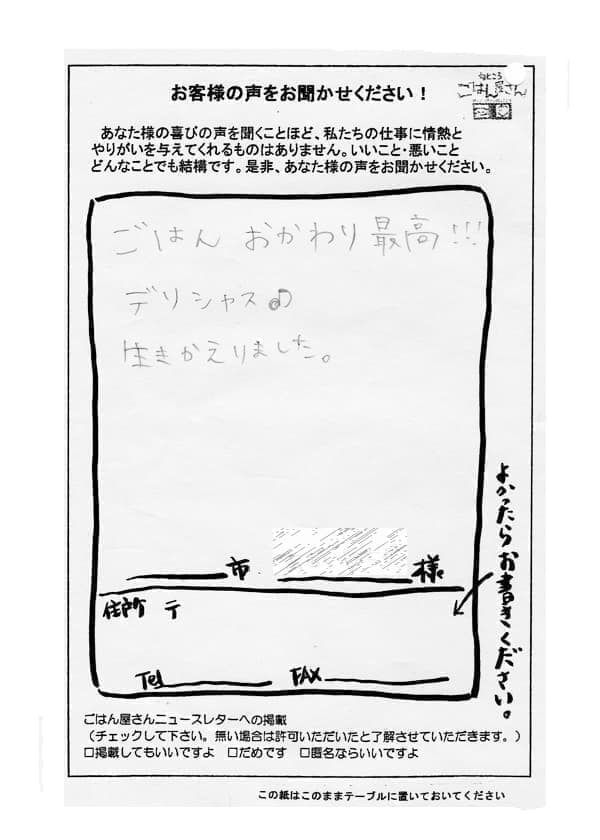 お客様の声をお聞かせください！
ごはん屋さん
あなた様の喜びの声を聞くことほど、私たちの仕事に情熱と
やりがいを与えてくれるものはありません。いいこと・悪いこと
どんなことでも結構です。是非、あなた様の声をお聞かせください。
ごはん おかわり 最高!!!
デリシャス♪
生きかえりました。
市 様
よかったらお書きください。
住所 〒
Tel FAX
ごはん屋さんニュースレターへの掲載
（チェックして下さい。無い場合は許可いただいたと了解させていただきます。）
□掲載してもいいですよ □だめです □匿名ならいいですよ
この紙はこのままテーブルに置いておいてください